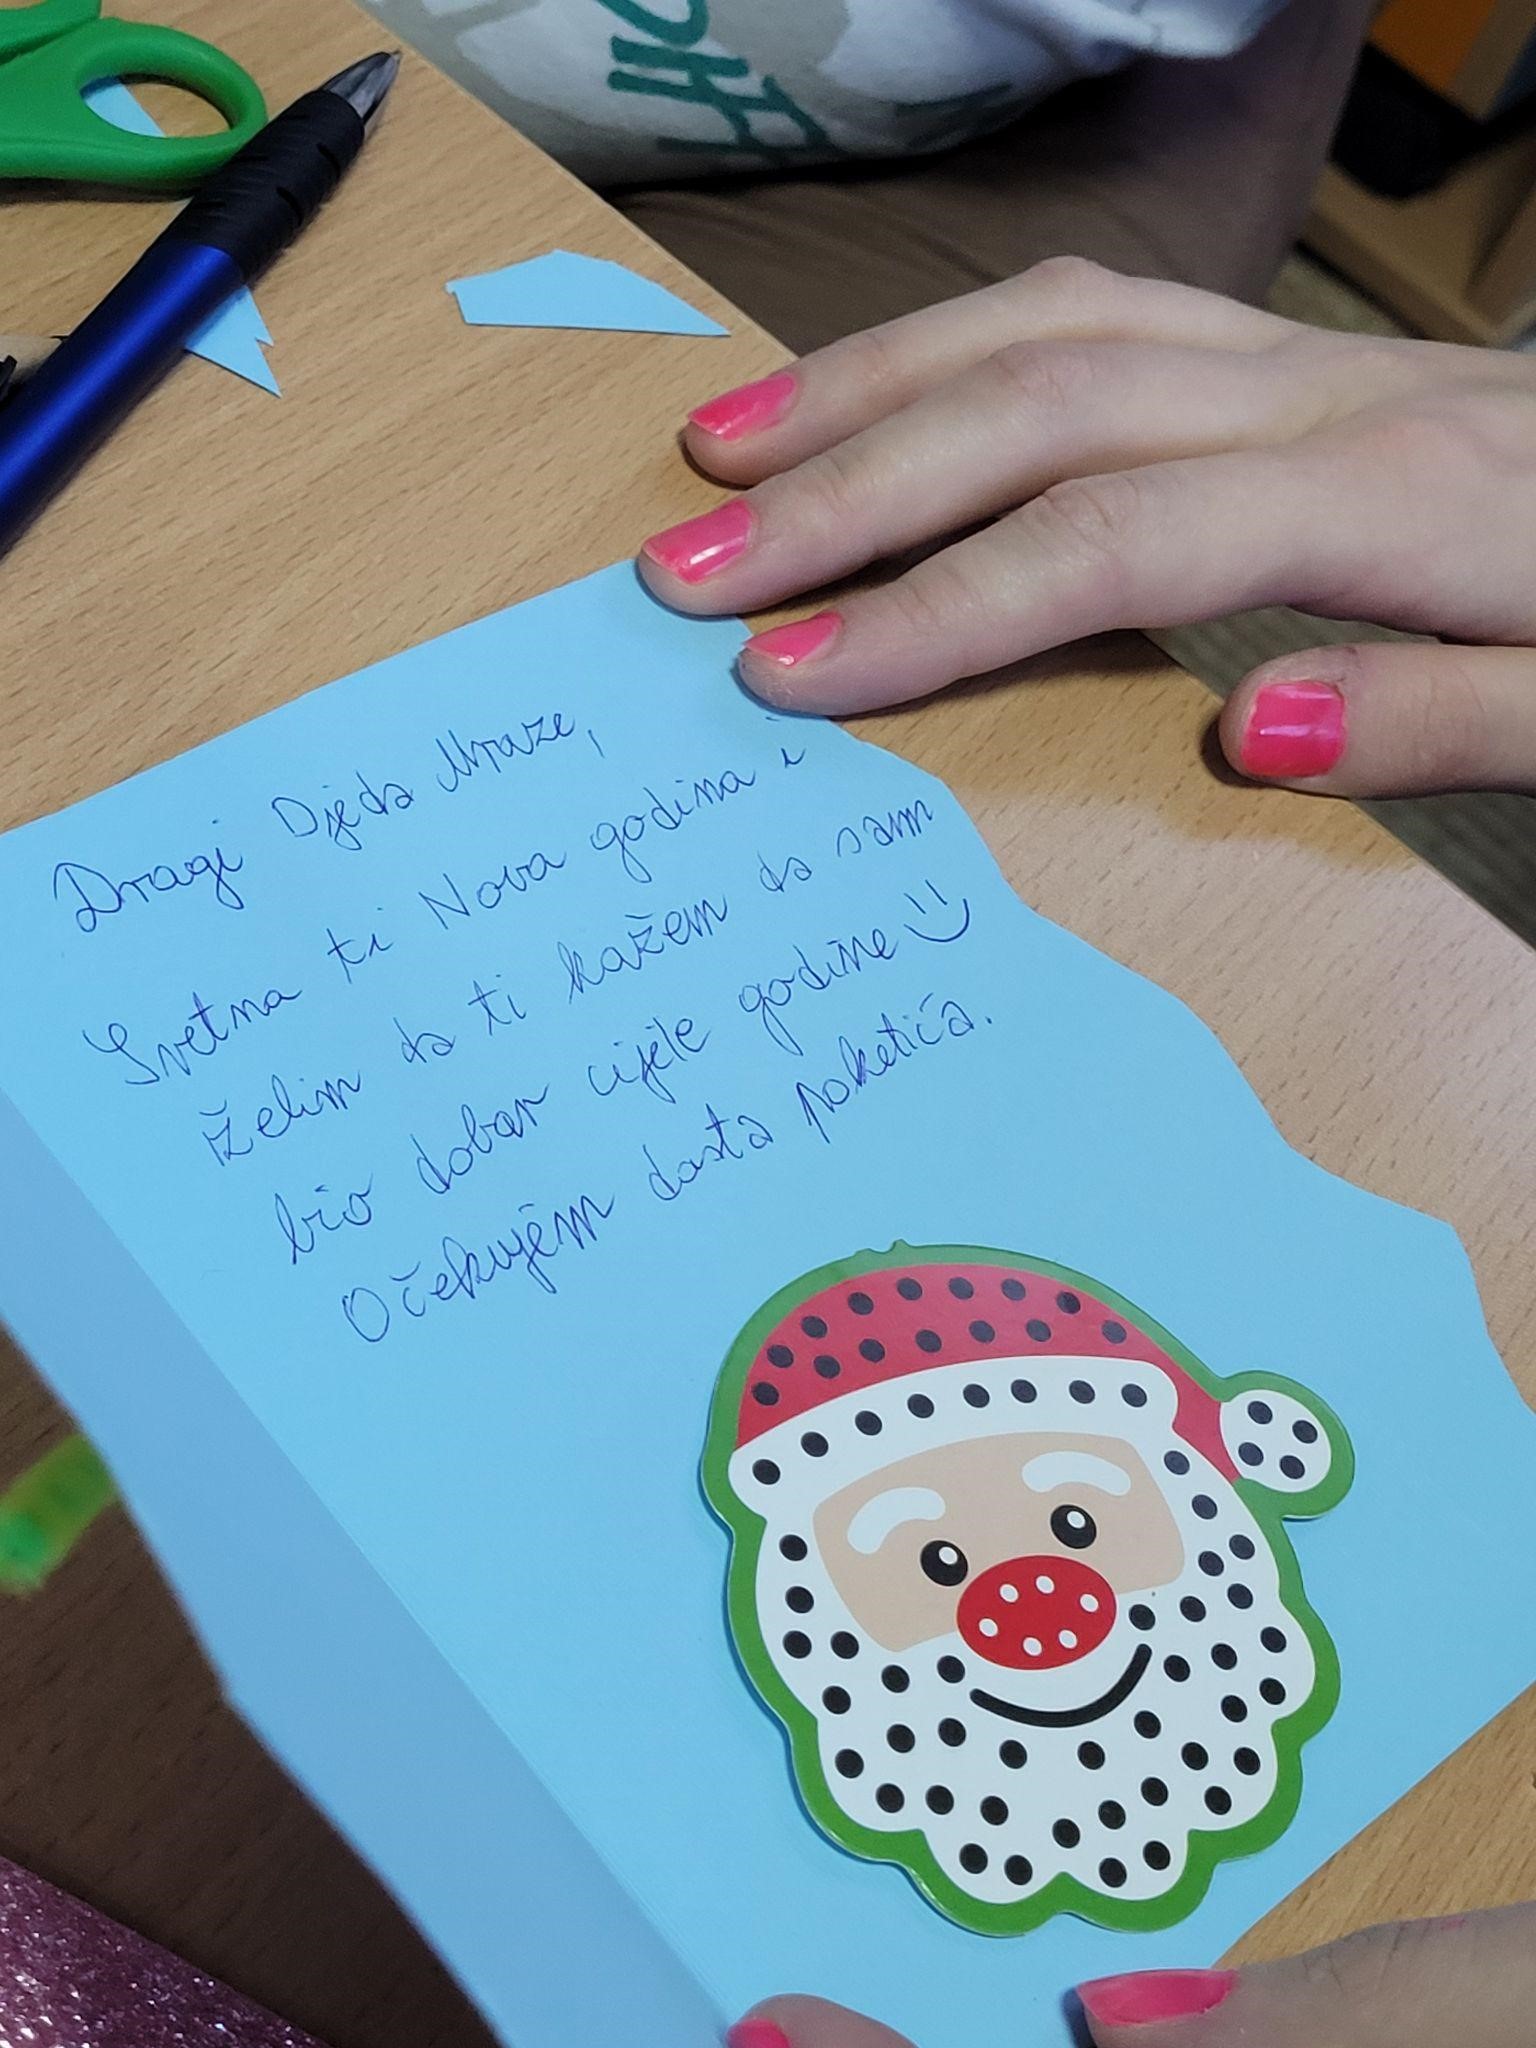 Dragi Djeda Mraze,
Sretna ti Nova godina i
želim da ti kažem da sam
bio dobar cijele godine
Očekujem dosta paketića.